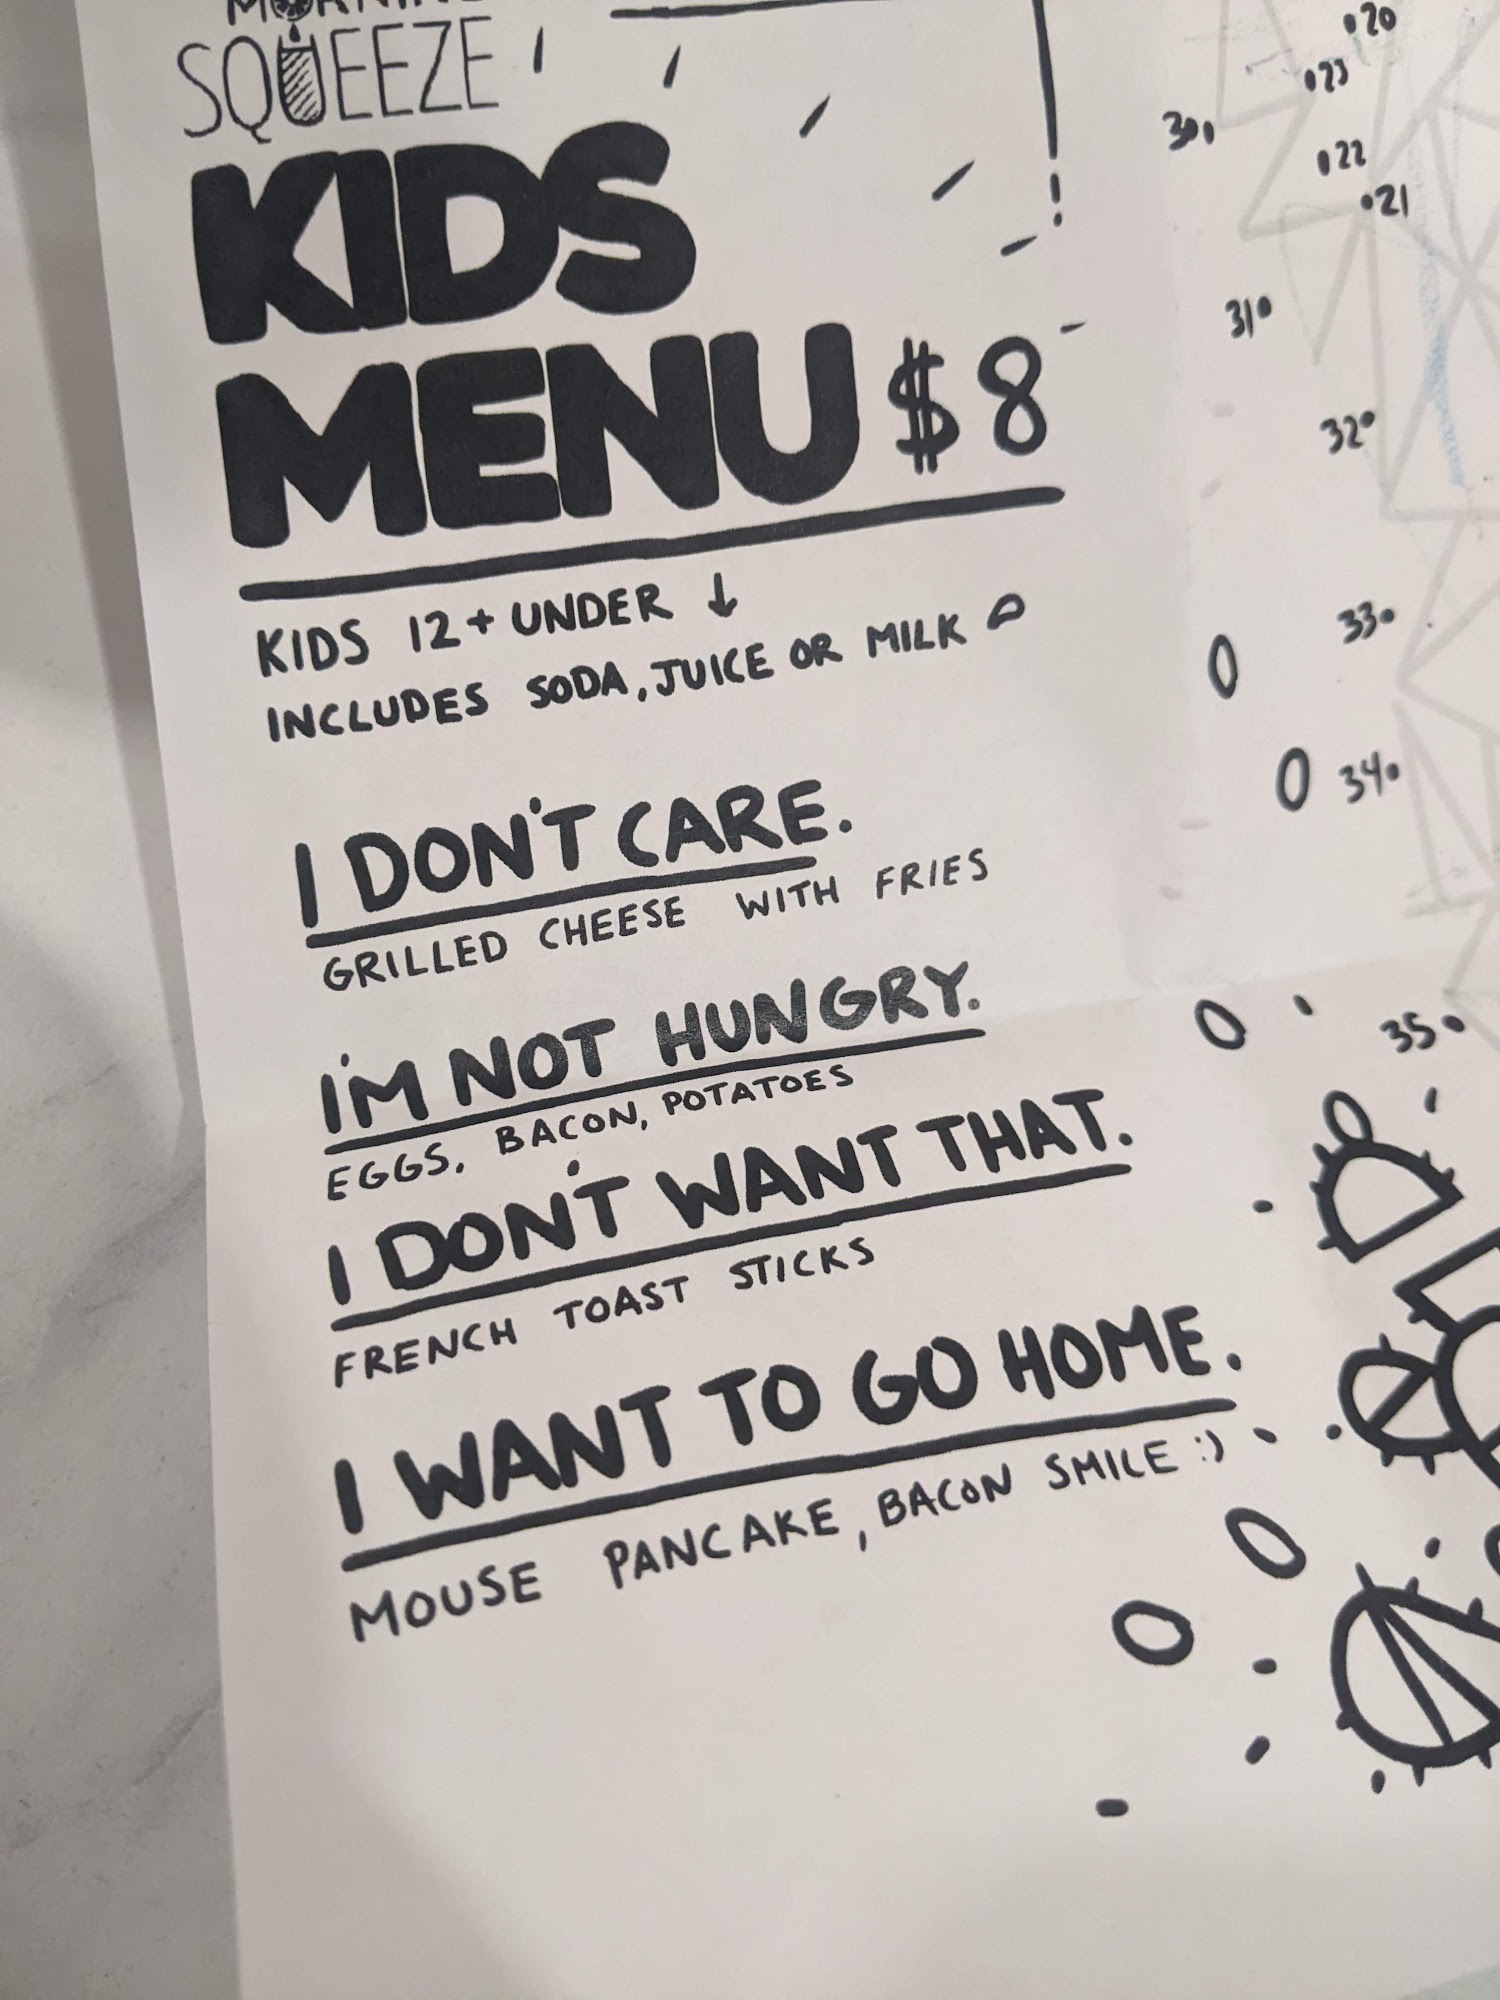 SQUEEZE
KIDS
MENU $8
KIDS 12 + UNDER ↓
INCLUDES SODA, JUICE OR MILK
I DON'T CARE.
GRILLED CHEESE WITH FRIES
I'M NOT HUNGRY.
EGGS, BACON, POTATOES
I DON'T WANT THAT.
FRENCH TOAST STICKS
I WANT TO GO HOME.
MOUSE PANCAKE, BACON SMILE :)
20
23
30
22
21
31
32
33
34
35